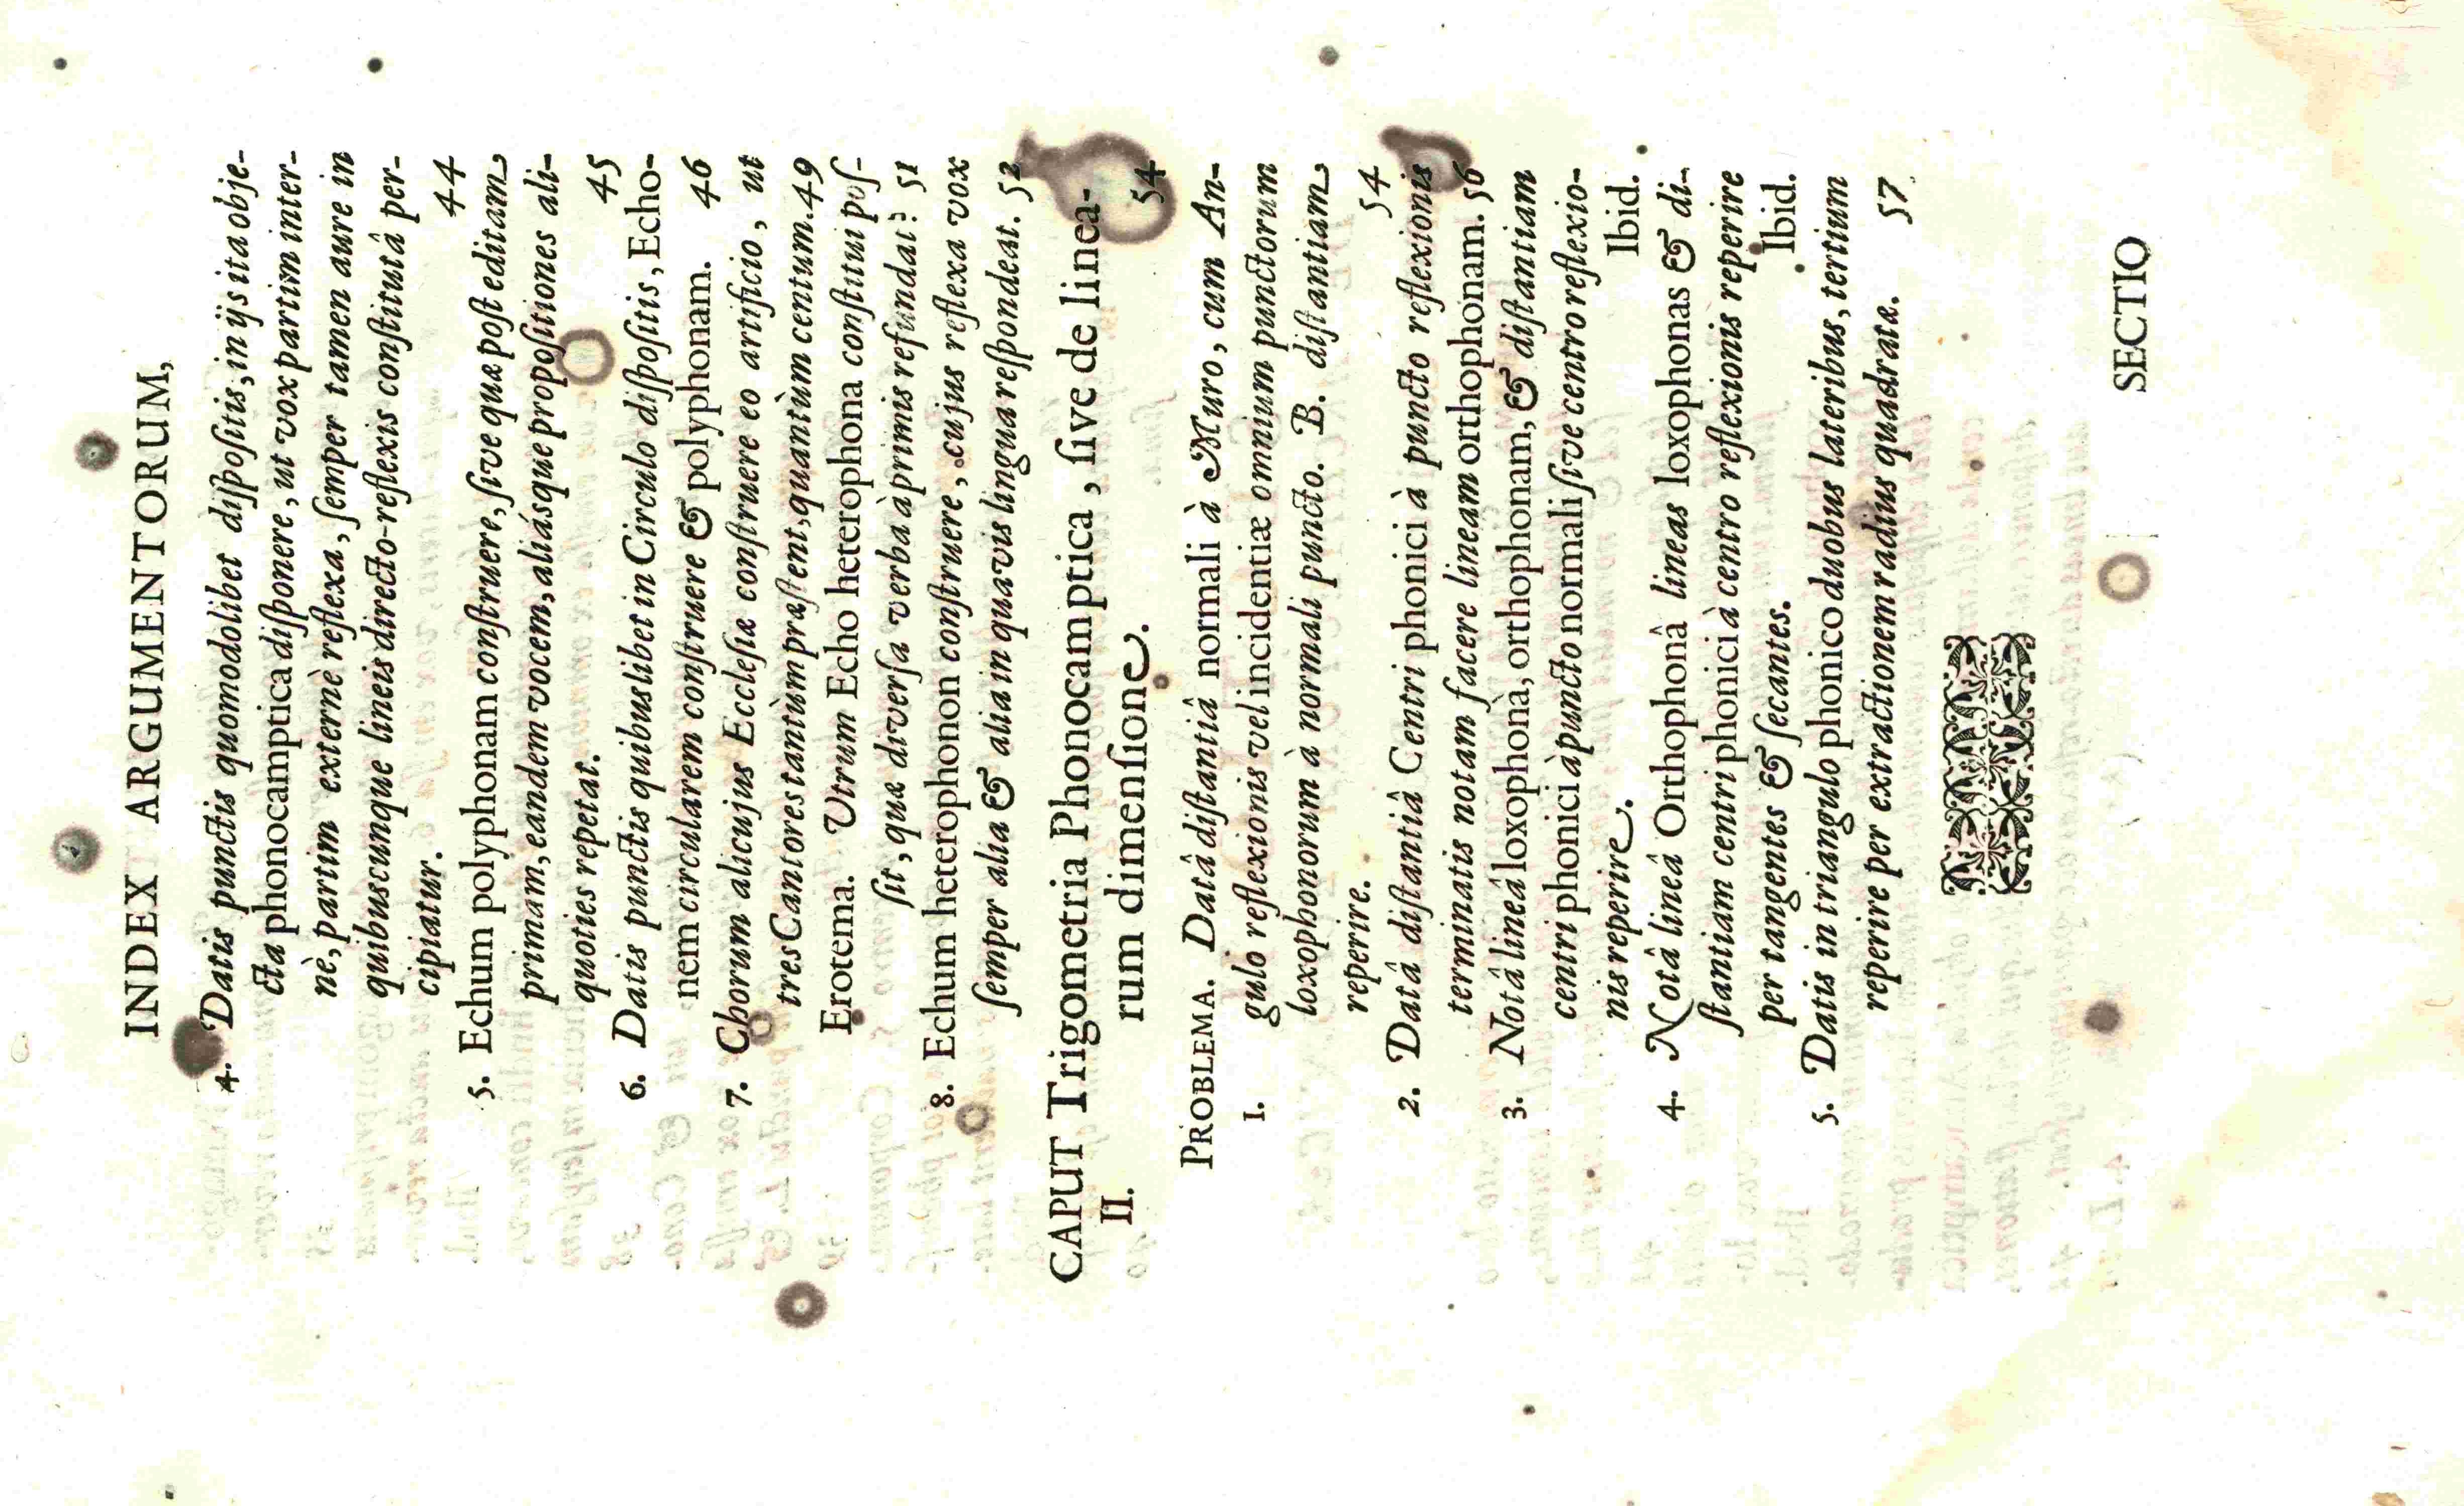 INDEX ARGUMENTORUM,
4. Datis punctis quomodolibet diſpoſitis, in ijs ita obje-
cta phonocamptica diſponere, ut vox partim inter-
nè, partim externè reflexa, ſemper tamen aure in
quibuscunque lineis directo-reflexis conſtitutâ per-
cipiatur. 44
5. Echum polyphonam conſtruere, ſive quæ poſt editam
primam, eandem vocem, aliásque propoſitiones ali-
quoties repetat. 45
6. Datis punctis quibuslibet in Circulo diſpoſitis, Echo-
nem circularem conſtruere & polyphonam. 46
7. Chorum alicujus Eccleſiæ conſtruere eo artificio, ut
tres Cantores tantùm præſtent, quantùm centum. 49
Erotema. Utrum Echo heterophona conſtitui poſ-
ſit, quæ diverſa verba à primis refundat? 51
8. Echum heterophonon conſtruere, cujus reflexa vox
ſemper alia & alia in quavis lingua reſpondeat. 52
CAPUT Trigometria Phonocamptica, ſive de linea-
II. rum dimenſione. 54
PROBLEMA. Datâ diſtantiâ normali à Muro, cum An-
1. gulo reflexionis vel incidentiæ omnium punctorum
loxophonorum à normali puncto. B. diſtantiam
reperire. 54
2. Datâ diſtantiâ Centri phonici à puncto reflexionis
terminatis notam facere lineam orthophonam. 56
3. Notâ lineâ loxophonâ, orthophonam, & diſtantiam
centri phonici à puncto normali ſive centro reflexio-
nis reperire. Ibid.
4. Notâ lineâ Orthophonâ lineas loxophonas & di-
ſtantiam centri phonici à centro reflexionis reperire
per tangentes & ſecantes. Ibid.
5. Datis in triangulo phonico duobus lateribus, tertium
reperire per extractionem radius quadratæ. 57
SECTIO